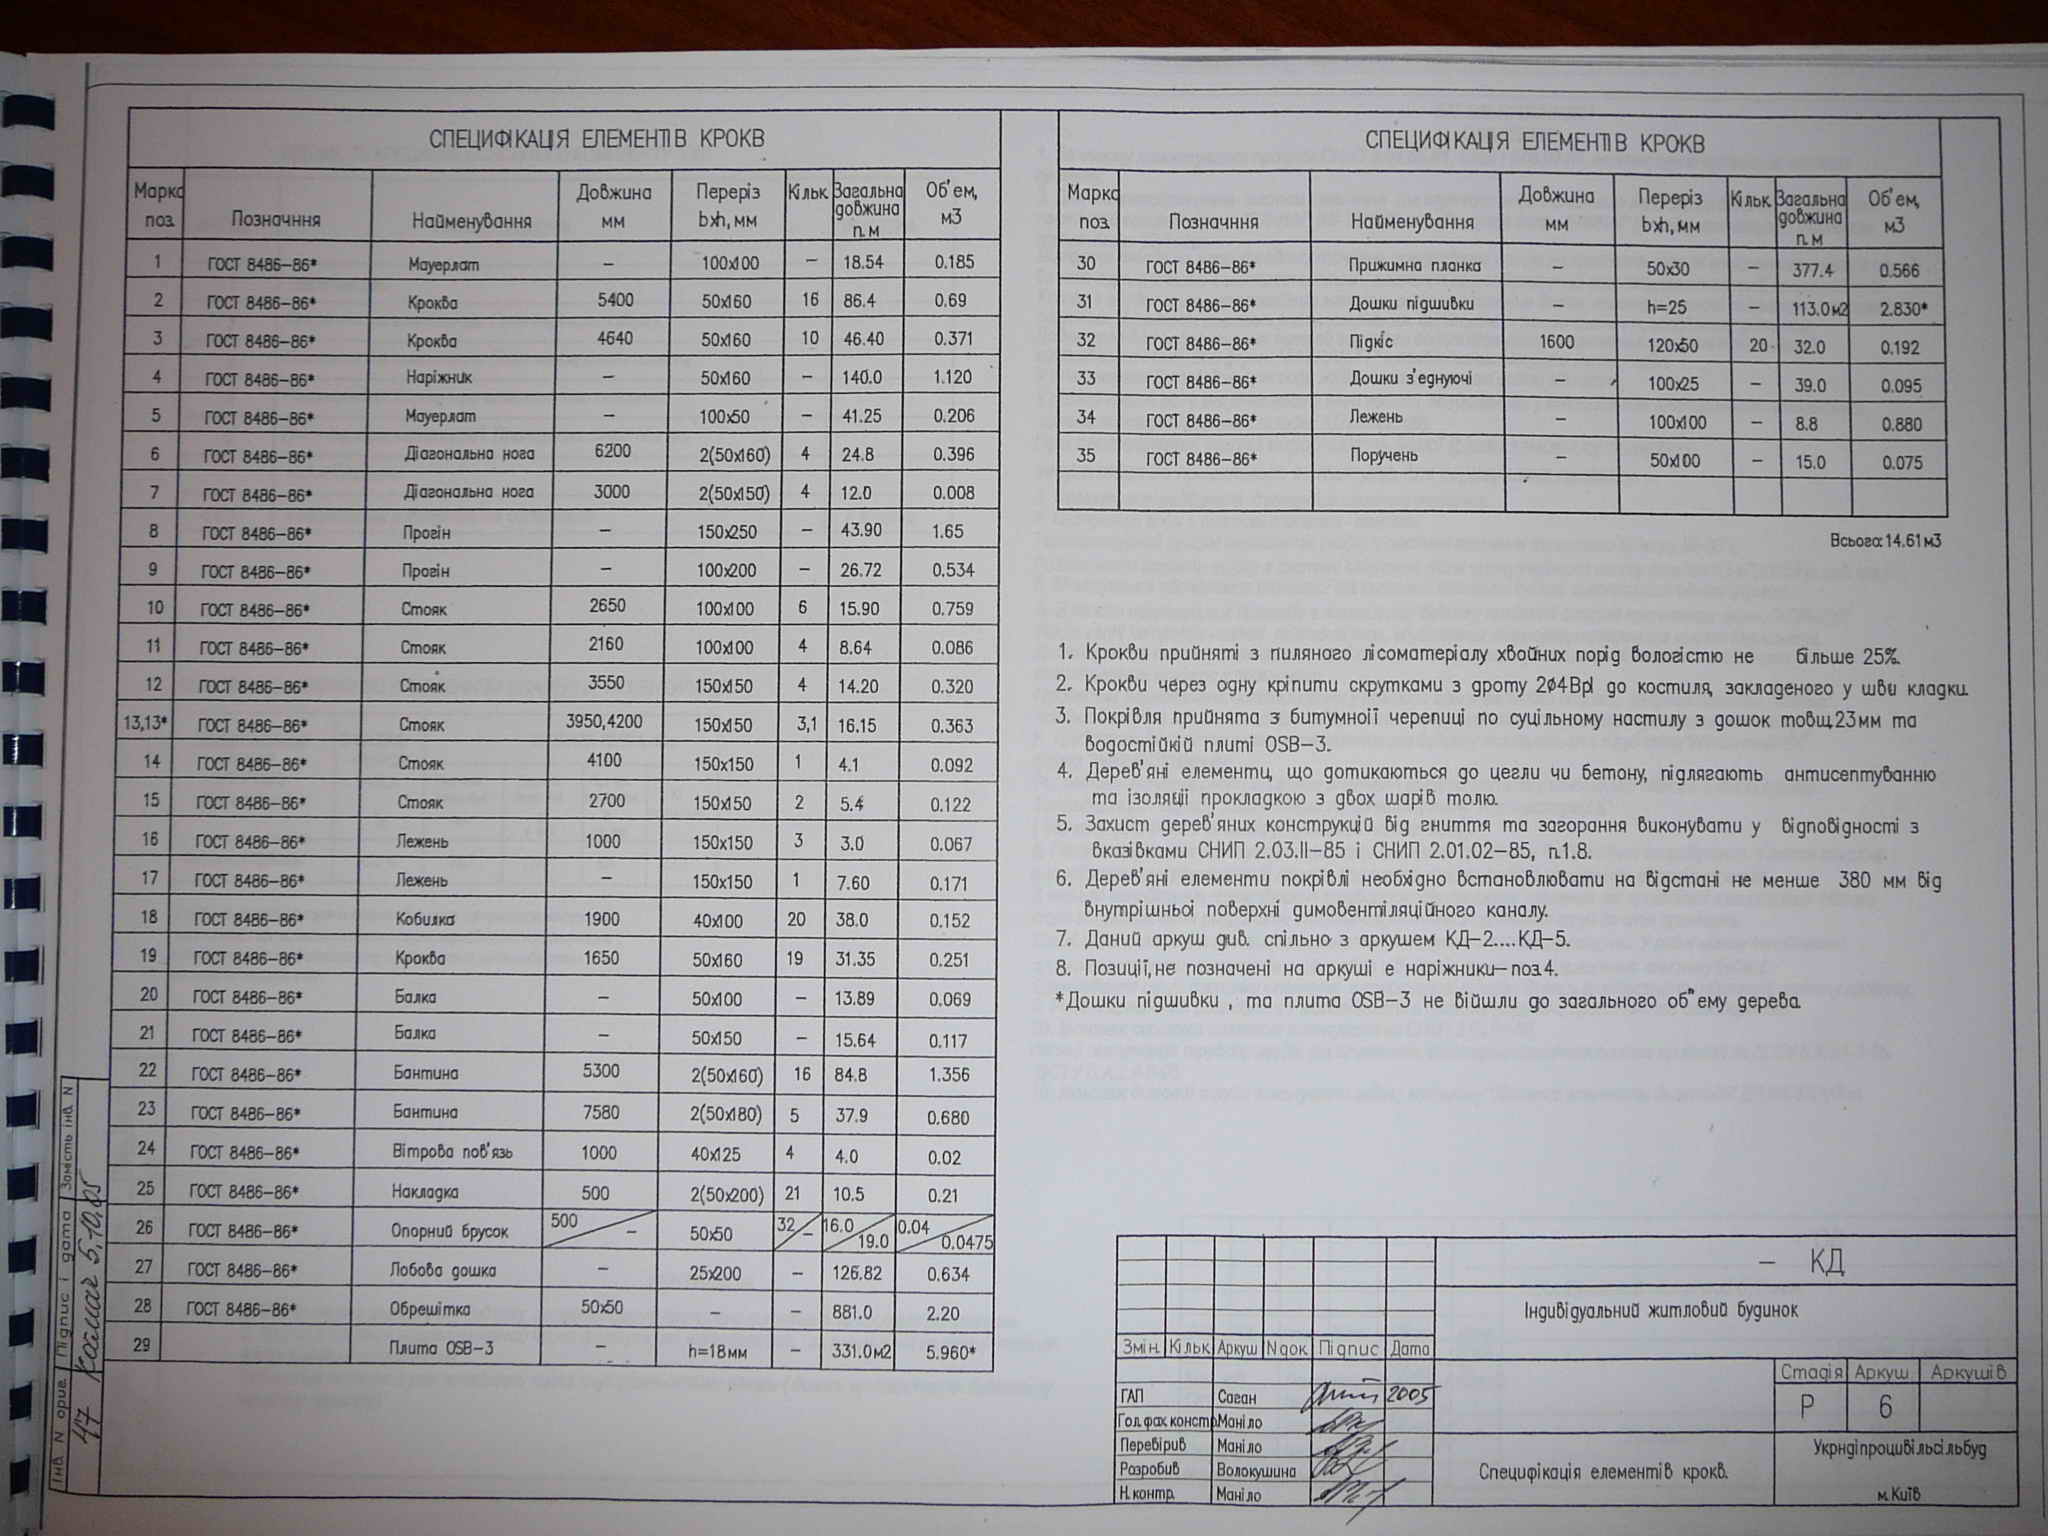 СПЕЦИФІКАЦІЯ ЕЛЕМЕНТІВ КРОКВ
Марка поз. Позначння Найменування Довжина мм Переріз bxh, мм Кільк. Загальна довжина п. м Об'ем, м3
1 ГОСТ 8486-86* Мауерлат – 100x100 – 18.54 0.185
2 ГОСТ 8486-86* Кроква 5400 50x160 16 86.4 0.69
3 ГОСТ 8486-86* Кроква 4640 50x160 10 46.40 0.371
4 ГОСТ 8486-86* Наріжник – 50x160 – 140.0 1.120
5 ГОСТ 8486-86* Мауерлат – 100x50 – 41.25 0.206
6 ГОСТ 8486-86* Діагональна нога 6200 2(50x160) 4 24.8 0.396
7 ГОСТ 8486-86* Діагональна нога 3000 2(50x150) 4 12.0 0.008
8 ГОСТ 8486-86* Прогін – 150x250 – 43.90 1.65
9 ГОСТ 8486-86* Прогін – 100x200 – 26.72 0.534
10 ГОСТ 8486-86* Стояк 2650 100x100 6 15.90 0.759
11 ГОСТ 8486-86* Стояк 2160 100x100 4 8.64 0.086
12 ГОСТ 8486-86* Стояк 3550 150x150 4 14.20 0.320
13,13* ГОСТ 8486-86* Стояк 3950,4200 150x150 3,1 16.15 0.363
14 ГОСТ 8486-86* Стояк 4100 150x150 1 4.1 0.092
15 ГОСТ 8486-86* Стояк 2700 150x150 2 5.4 0.122
16 ГОСТ 8486-86* Лежень 1000 150x150 3 3.0 0.067
17 ГОСТ 8486-86* Лежень – 150x150 1 7.60 0.171
18 ГОСТ 8486-86* Кобилка 1900 40x100 20 38.0 0.152
19 ГОСТ 8486-86* Кроква 1650 50x160 19 31.35 0.251
20 ГОСТ 8486-86* Балка – 50x100 – 13.89 0.069
21 ГОСТ 8486-86* Балка – 50x150 – 15.64 0.117
22 ГОСТ 8486-86* Бантина 5300 2(50x160) 16 84.8 1.356
23 ГОСТ 8486-86* Бантина 7580 2(50x180) 5 37.9 0.680
24 ГОСТ 8486-86* Вітрова пов'язь 1000 40x125 4 4.0 0.02
25 ГОСТ 8486-86* Накладка 500 2(50x200) 21 10.5 0.21
26 ГОСТ 8486-86* Опорний брусок 500/– 50x50 32/– 16.0/19.0 0.04/0.0475
27 ГОСТ 8486-86* Лобова дошка – 25x200 – 126.82 0.634
28 ГОСТ 8486-86* Обрешітка 50x50 – – 881.0 2.20
29 Плита OSB-3 – h=18мм – 331.0м2 5.960*
СПЕЦИФІКАЦІЯ ЕЛЕМЕНТІВ КРОКВ
Марка поз. Позначння Найменування Довжина мм Переріз bxh, мм Кільк. Загальна довжина п. м Об'ем, м3
30 ГОСТ 8486-86* Прижимна планка – 50x30 – 377.4 0.566
31 ГОСТ 8486-86* Дошки підшивки – h=25 – 113.0м2 2.830*
32 ГОСТ 8486-86* Підкіс 1600 120x50 20 32.0 0.192
33 ГОСТ 8486-86* Дошки з'еднуючі – 100x25 – 39.0 0.095
34 ГОСТ 8486-86* Лежень – 100x100 – 8.8 0.880
35 ГОСТ 8486-86* Поручень – 50x100 – 15.0 0.075
Всього: 14.61м3
1. Крокви прийняті з пиляного лісоматеріалу хвойних порід вологістю не більше 25%.
2. Крокви через одну кріпити скрутками з дроту 2ø4Врl до костиля, закладеного у шви кладки.
3. Покрівля прийнята з битумноїї черепиці по суцільному настилу з дошок товщ.23мм та
водостійкій плиті OSB-3.
4. Дерев'яні елементи, що дотикаються до цегли чи бетону, підлягають антисептуванню
та ізоляціі прокладкою з двох шарів толю.
5. Захист дерев'яних конструкцій від гниття та загорання виконувати у відповідності з
вказівками СНИП 2.03.II-85 і СНИП 2.01.02-85, п.1.8.
6. Дерев'яні елементи покрівлі необхідно встановлювати на відстані не менше 380 мм від
внутрішньоі поверхні димовентіляційного каналу.
7. Даний аркуш див. спільно з аркушем КД-2....КД-5.
8. Позиції, не позначені на аркуші е наріжники-поз.4.
*Дошки підшивки , та плита OSB-3 не війшли до загального об"ему дерева.
– КД
Індивідуальний житловий будинок
Змін. Кільк. Аркуш Nдок. Підпис Дата
Стадія Аркуш Аркушів
Р 6
ГАП Саган 2005
Гол.фах.констр. Маніло
Перевірив Маніло
Розробив Волокушина
Н.контр. Маніло
Специфікація елементів крокв.
Укрндіпроцивільсільбуд
м.Київ
Інв. N ориг. Підпис і дата Замість інв. N
47 5.10.05